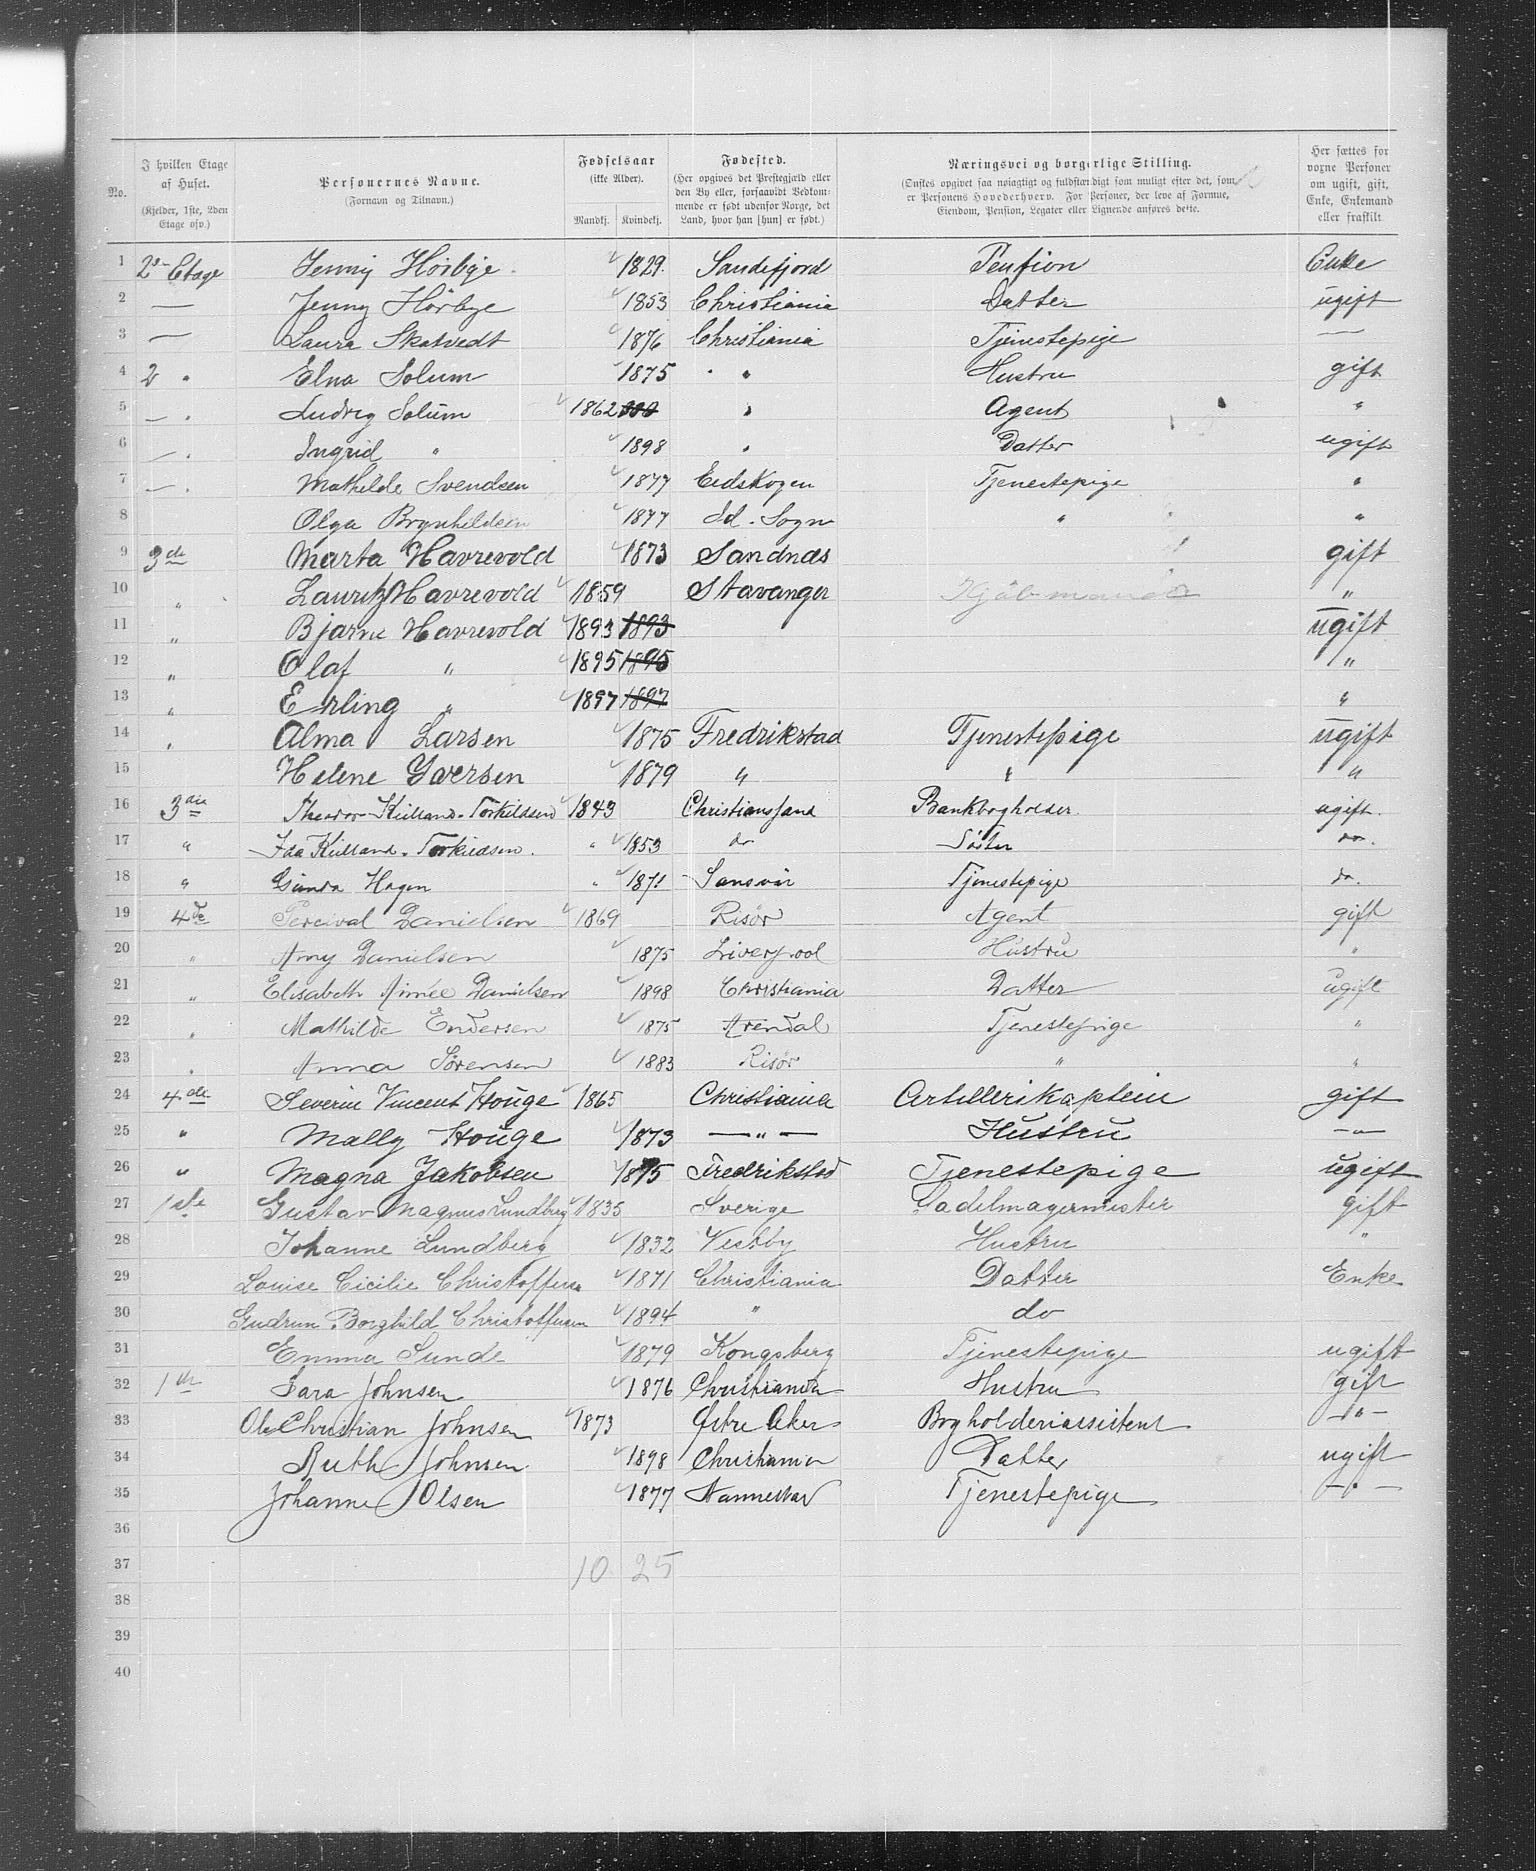 No. I hvilken Etage af Huset. (Kjelder, 1ste, 2den Etage osv.) Personernes Navne. (Fornavn og Tilnavn.) Fødselsaar (ikke Alder). Mandkj. Kvindekj. Fødested. (Her opgives det Prestegjæld eller den By eller, forsaavidt Vedkommende er født udenfor Norge, det Land, hvor han [hun] er født.) Næringsvei og borgerlige Stilling. (Ønskes opgivet saa nøiagtigt og fuldstændigt som muligt efter det, som er Personens Hovederhverv. For Personer, der leve af Formue, Eiendom, Pension, Legater eller Lignende anføres dette. Her sættes for voxne Personer om ugift, gift, Enke, Enkemand eller fraskilt
1 2den Etage Jenny Hörbye 1829. Sandefjord Pension Enke
2 — Jenny Hörbye 1853 Christiania Datter ugift
3 — Laura Skatvedt 1876 Christiania Tjenestepige —
4 2 " Elna Solum 1875 " " Hustru gift
5 — " Ludvig Solum 1862 " Agent "
6 — " Ingrid " 1898 " Datter ugift
7 — " Mathilde Svendsen 1877 Eidskogen Tjenestepige "
8 Olga Brynhildsen 1877 Id. Sogn " "
9 3de Marta Havrevold 1873 Sandnæs gift
10 " Lauritz Havrevold 1859 Stavanger Kjöbmand "
11 " Bjarne Havrevold 1893 1893 ugift
12 " Olaf " 1895 1895 "
13 " Erling " 1897 1897 "
14 " Alma Larsen 1875 Fredrikstad Tjenestepige ugift
15 Helene Iversen 1879 " " "
16 3die Theodor Kielland-Torkildsen 1843 Christianssand Bankbogholder. ugift.
17 " Ida Kielland-Torkildsen. " 1853 do Söster do.
18 " Gunda Hagen " 1871 Sansvær Tjenestepige do.
19 4de Percival Danielsen 1869 Risør Agent gift
20 " Amy Danielsen 1875 Liverpool Hustru "
21 " Elisabeth Aimée Danielsen 1898 Christiania Datter ugift
22 " Mathilde Endersen 1875 Arendal Tjenestepige "
23 " Anna Sørensen 1883 Risør " "
24 4de Severin Vincent Houge 1865 Christiania Artillerikaptein gift
25 " Mally Houge 1873 — " — Hustru — " —
26 " Magna Jakobsen 1875 Fredrikstad Tjenestepige ugift
27 1ste Gustav Magnus Lundberg 1835 Sverige Sadelmagermester gift
28 Johanne Lundberg 1832 Vestby Hustru "
29 Louise Cicilie Christoffersen 1871 Christiania Datter Enke
30 Gudrun Borghild Christoffersen 1894 " do
31 Emma Sunde 1879 Kongsberg Tjenestepige ugift
32 1ste Sara Johnsen 1876 Christiania Hustru gift
33 Ole Christian Johnsen 1873 Østre Aker Bogholderiassistent — " —
34 Ruth Johnsen 1898 Christiania Datter ugift
35 Johanne Olsen 1877 Nannestad Tjenestepige — " —
36
37 10 25
38
39
40